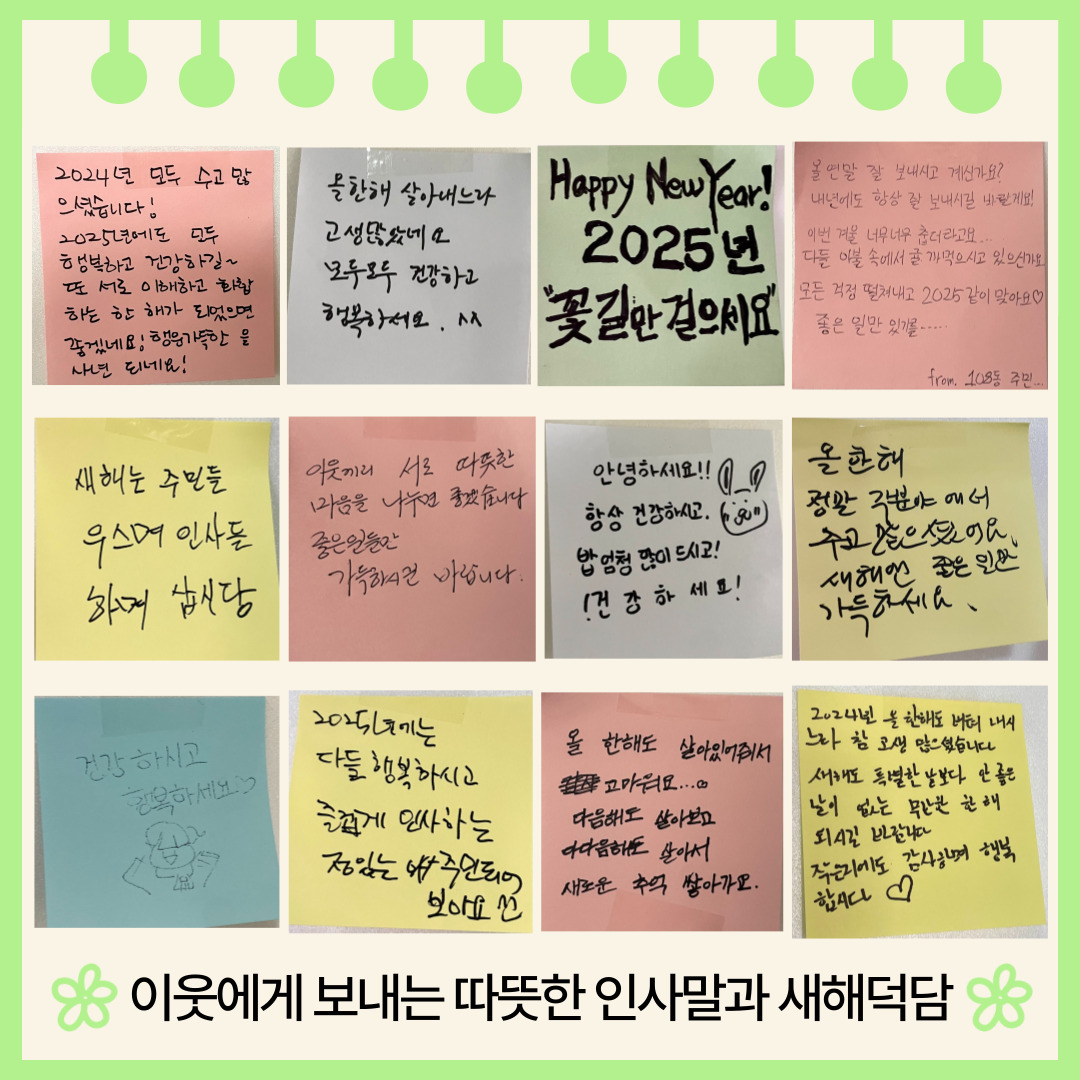 2024년 모두 수고 많
으셨습니다!
2025년에도 모두
행복하고 건강하길~
또 서로 이해하고 화합
하는 한 해가 되었으면
좋겠네요! 행운가득한 을
사년 되네요!
올한해 살아내느라
고생많았네요
모두모두 건강하고
행복하서요. ^^
Happy New Year!
2025년
"꽃길만 걸으세요"
올 연말 잘 보내시고 계신가요?
내년에도 항상 잘 보내시길 바랄게요!
이번 겨울 너무너무 춥더라고요...
다들 이불 속에서 귤 까먹으시고 있으신가요
모든 걱정 떨쳐내고 2025 같이 맞아요♡
좋은 일만 있기를.....
from. 108동 주민...
새해는 주민들
우스며 인사들
하며 삽시당
이웃끼리 서로 따뜻한
마음을 나누면 좋겠습니다
좋은일들만
가득하시건 바랍니다.
안녕하세요!!
항상 건강하시고.
밥 엄청 많이 드시고!
!건강하세요!
올 한해
정말 각분야에서
수고 많으셨어요.
새해엔 좋은 일만
가득하세요.
건강하시고
행복하세요♡
2025년에는
다들 행복하시고
즐겁게 인사하는
정있는 주민되어
보아요
올 한해도 살아있어줘서
고마워요...
다음해도 살아보고
다다음해도 살아서
새로운 추억 쌓아가요.
2024년 올 한해도 버텨 내시
느라 참 고생 많으셨습니다
새해도 특별한 날보다 안 좋은
날이 없는 무난한 한 해
되시길 바랍니다
감사하며 행복
합시다 ♡
이웃에게 보내는 따뜻한 인사말과 새해덕담